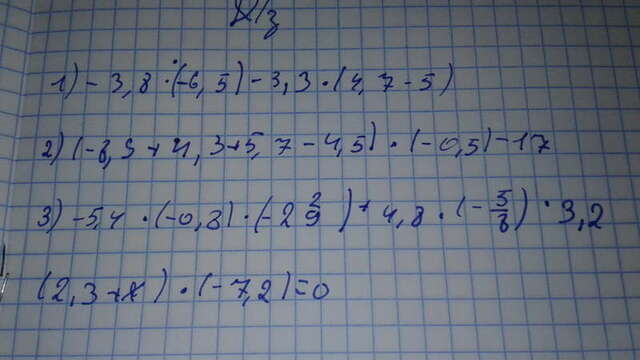 Д/з
1) - 3,8 · (-6,5) - 3,3 · (4,7 - 5)
2) (-8,9 + 4,3 + 5,7 - 4,5) · (-0,5) - 17
3) -5,4 · (-0,8) · (-2 2/9) + 4,8 · (- 5/8) · 3,2
(2,3 + x) · (-7,2) = 0